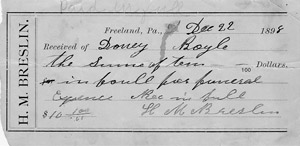 H. M. BRESLIN.
Freeland, Pa., Dec 22 1898
Received of Doney Boyle
the sum of ten —/100 Dollars.
in full for funeral
Expence Rec in full
$10 00/100 H. M. Breslin